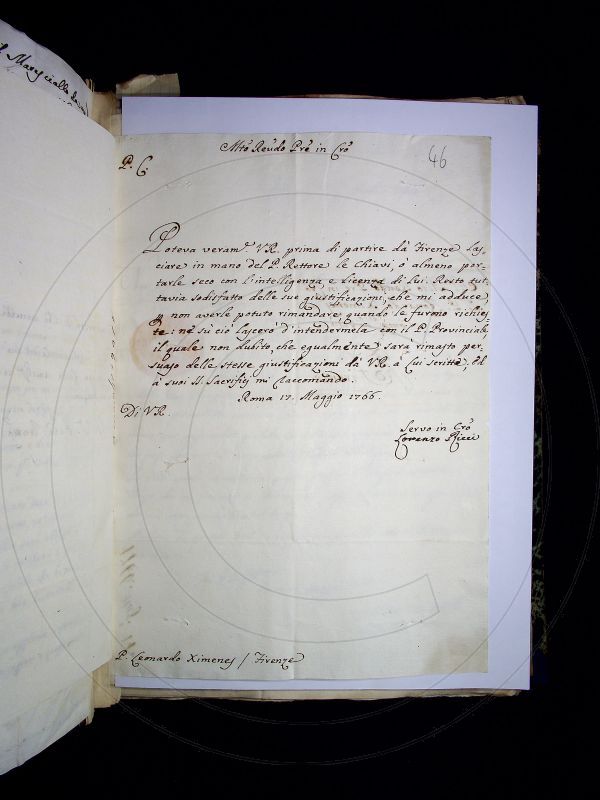 Maresciallo
Mto Reudo Pre in Cro
46
P. C.
Poteva veramte VR. prima di partire dà Firenze las,,
ciare in mano del P. Rettore le Chiavi, ò almeno por-
tarle seco con l'intelligenza, e Licenza di Lui. Resto tut-
tavia sodisfatto delle sue giustificazioni, che mi adduce,
p non averle potuto rimandare quando le furono richies-
te: nè sù ciò lascerò d'intendermela con il P. Provinciale,
il quale non dubito, che egualmente sarà rimasto per,,
suaso delle stesse giustificazioni dà VR. à Lui scritte; Ed
à suoi SS. Sacrifij mi raccomando.
Roma 17. Maggio 1766.
Di VR.
Servo in Cro
Lorenzo Ricci
P. Leonardo Ximenes / Firenze